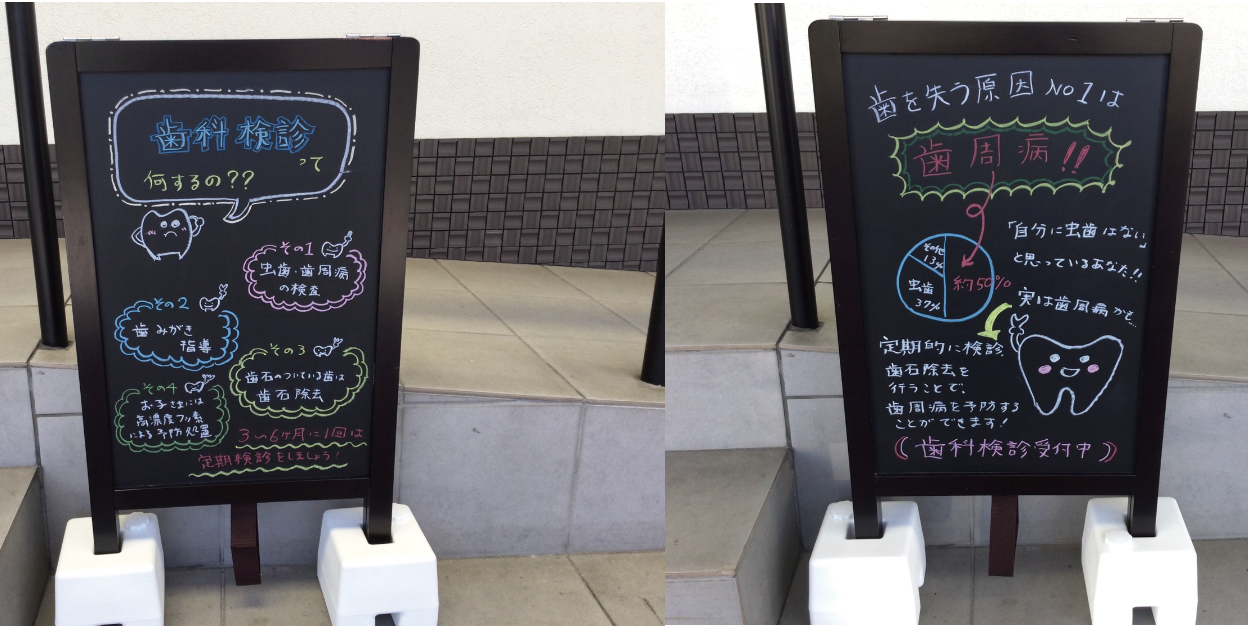 歯科検診
って
何するの??
その1
虫歯・歯周病
の検査
その2
歯みがき
指導
その3
歯石のついている歯は
歯石除去
その4
お子さまには
高濃度フッ素
による予防処置
3〜6ヶ月に1回は
定期検診をしましょう!
歯を失う原因No1は
歯周病!!
その他
13%
虫歯
37%
約50%
「自分に虫歯はない」
と思っているあなた!!
実は歯周病かも…
定期的に検診、
歯石除去を
行うことで、
歯周病を予防する
ことができます!
(歯科検診受付中)